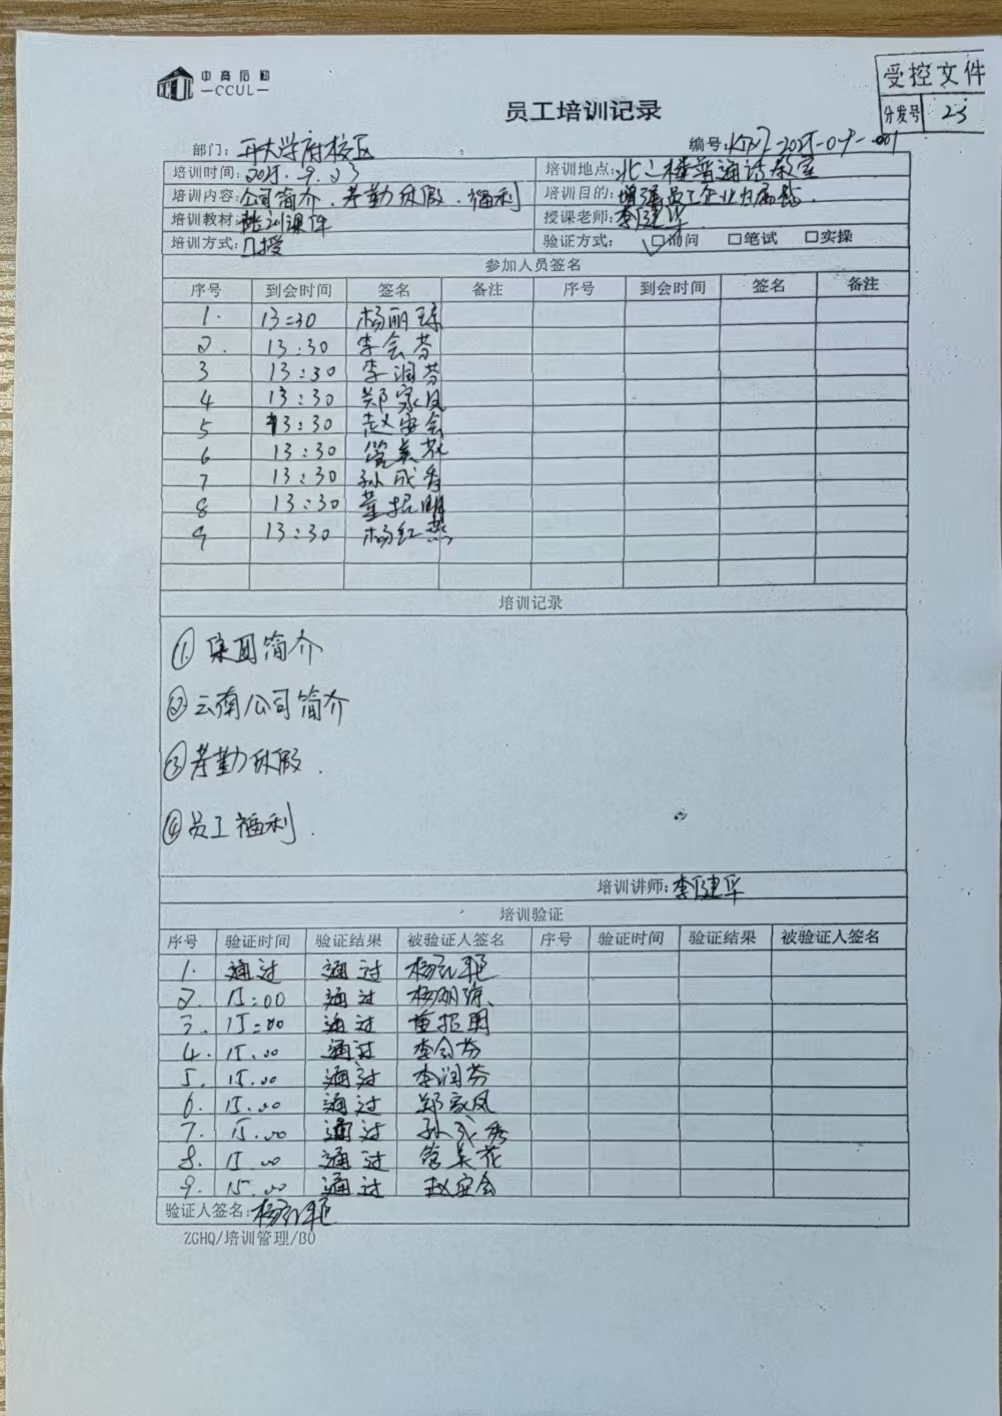 中高后勤
—CCUL—
受控文件
分发号 23
员工培训记录
部门: 开大学府校区 编号:
培训时间: 2025.9.03 培训地点: 北二楼普通话教室
培训内容: 公司简介、考勤休假、福利 培训目的: 增强员工企业归属感.
培训教材: 培训课件 授课老师: 李健华
培训方式: 口授 验证方式: ☑询问 □笔试 □实操
参加人员签名
序号 到会时间 签名 备注 序号 到会时间 签名 备注
1. 13:30 杨丽琼
2. 13:30 李会芬
3 13:30 李润芬
4 13:30 郑家凤
5 13:30 赵安会
6 13:30 管美花
7 13:30 孙成秀
8 13:30 董招明
9 13:30 杨红燕
培训记录
① 集团简介
② 云南公司简介
③ 考勤休假.
④ 员工福利.
培训讲师: 李健华
培训验证
序号 验证时间 验证结果 被验证人签名 序号 验证时间 验证结果 被验证人签名
1. 通过 通过
2. 15:00 通过 杨丽琼
3. 15:00 通过 董招明
4. 15.00 通过 李会芬
5. 15.00 通过 李润芬
6. 15.00 通过 郑家凤
7. 15.00 通过 孙成秀
8. 15.00 通过 管美花
9. 15.00 通过 赵安会
验证人签名:
ZGHQ/培训管理/B0